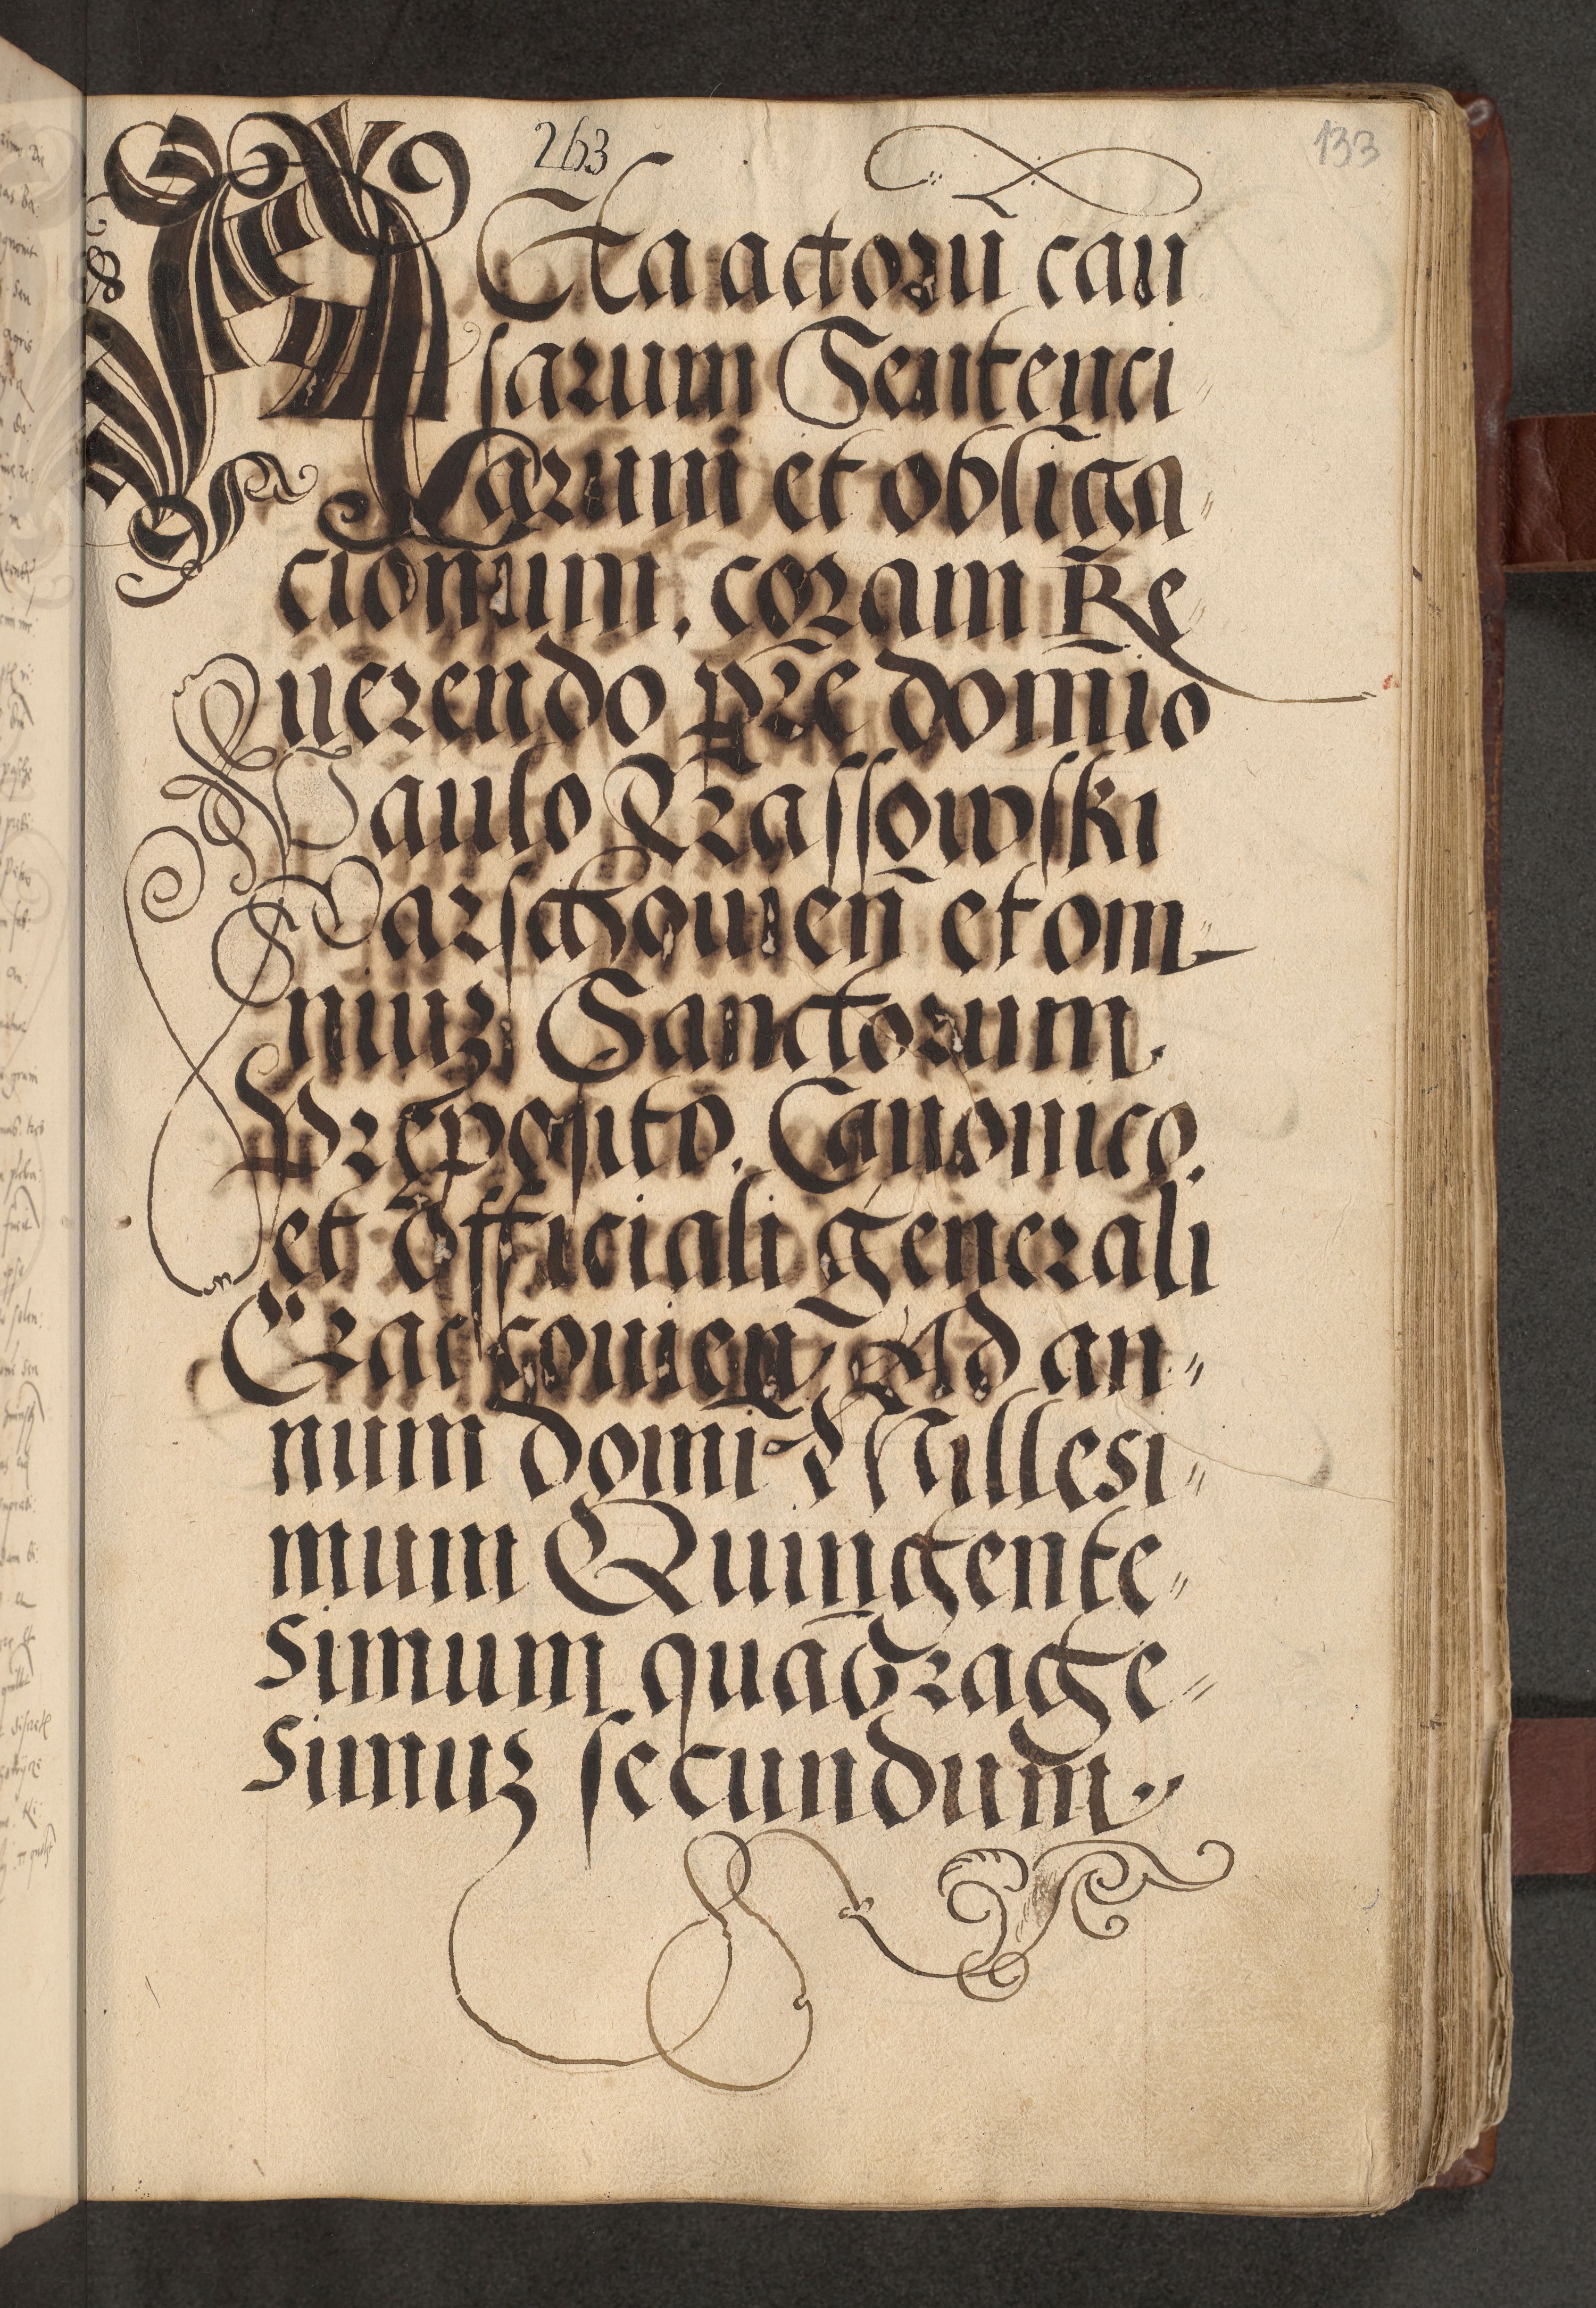 263
133
ACta actorū cau
sarum Sentenci
arum et obliga
cionum. coram Re
uerendo pr̄e domīo
Paulo Krassowski
Varschouien̄ et om
niuʒ Sanctorum.
Preposito. Canonico.
et officiali generali
Craccouien̄ Ad an
num domī Millesi
mum Quingente
simum quadrage
simuʒ secundum.